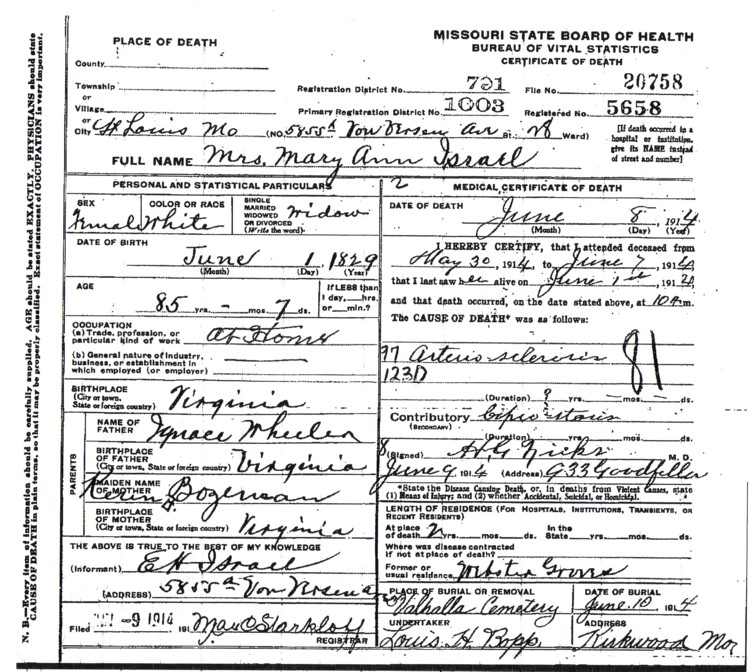 MISSOURI STATE BOARD OF HEALTH
BUREAU OF VITAL STATISTICS
CERTIFICATE OF DEATH
PLACE OF DEATH
County
Township
or
Village
or
City St Louis Mo (No. 5855a Von Versen Ave St.; 28 Ward)
Registration District No. 791 File No. 20758
Primary Registration District No. 1003 Registered No. 5658
[If death occurred in a hospital or institution, give its NAME instead of street and number]
FULL NAME Mrs. Mary Ann Israel
PERSONAL AND STATISTICAL PARTICULARS
SEX Female
COLOR OR RACE White
SINGLE MARRIED WIDOWED OR DIVORCED (Write the word) Widow
DATE OF BIRTH June 1, 1829
(Month) (Day) (Year)
AGE 85 yrs. - mos. 7 ds.
If LESS than 1 day,....hrs. or....min.?
OCCUPATION
(a) Trade, profession, or particular kind of work At Home
(b) General nature of industry, business, or establishment in which employed (or employer)
BIRTHPLACE
(City or town, State or foreign country) Virginia
PARENTS
NAME OF FATHER Wheeler
BIRTHPLACE OF FATHER
(City or town, State or foreign country) Virginia
MAIDEN NAME OF MOTHER
BIRTHPLACE OF MOTHER
(City or town, State or foreign country) Virginia
THE ABOVE IS TRUE TO THE BEST OF MY KNOWLEDGE
(Informant) E H Israel
(ADDRESS) 5855a Von Versen a
Filed -9 1914 191 Max C Starkloff
REGISTRAR
2 MEDICAL CERTIFICATE OF DEATH
DATE OF DEATH June 8, 1914
(Month) (Day) (Year)
I HEREBY CERTIFY, that I attended deceased from
May 30, 1914, to June 7, 1914,
that I last saw her alive on June 191
and that death occurred, on the date stated above, at 10 m.
The CAUSE OF DEATH* was as follows:
97 Arterio sclerosis 81
123D
(Duration) 9 yrs. - mos. - ds.
Contributory
(SECONDARY)
(Duration) yrs. mos. ds.
(Signed) M. D.
June 9, 1914 (Address)
*State the Disease Causing Death, or, in deaths from Violent Causes, state (1) Means of Injury; and (2) whether Accidental, Suicidal, or Homicidal.
LENGTH OF RESIDENCE (For Hospitals, Institutions, Transients, or Recent Residents)
At place of death 2 yrs. mos. ds. In the State yrs. mos. ds.
Where was disease contracted if not at place of death?
Former or usual residence Webster Groves
PLACE OF BURIAL OR REMOVAL
Valhalla Cemetery
DATE OF BURIAL
June 10, 1914
UNDERTAKER
Louis H Bopp
ADDRESS
Kirkwood Mo
N. B.—Every item of information should be carefully supplied. AGE should be stated EXACTLY. PHYSICIANS should state
CAUSE OF DEATH in plain terms, so that it may be properly classified. Exact statement of OCCUPATION is very important.